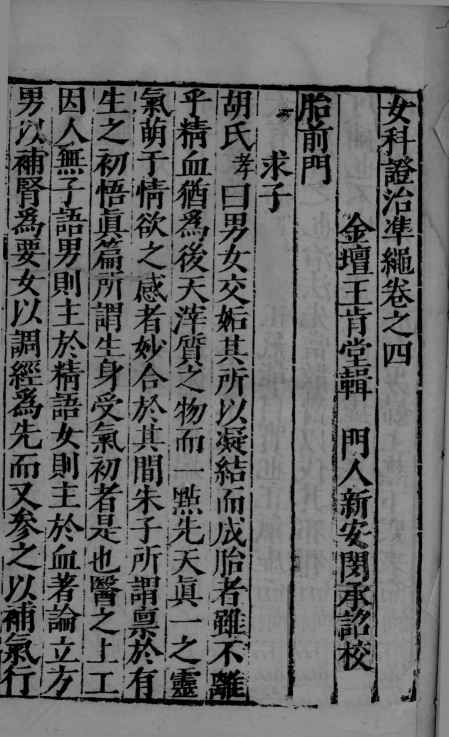 女科證治準繩卷之四
金壇王肯堂輯　門人新安閔承詔校
胎前門
求子
胡氏孝曰男女交姤其所以凝結而成胎者雖不離
乎精血猶爲後天滓質之物而一點先天眞一之靈
氣萌于情欲之感者妙合於其間朱子所謂禀於有
生之初悟眞篇所謂生身受氣初者是也醫之上工
因人無子語男則主於精語女則主於血著論立方
男以補腎爲要女以調經爲先而又参之以補氣行